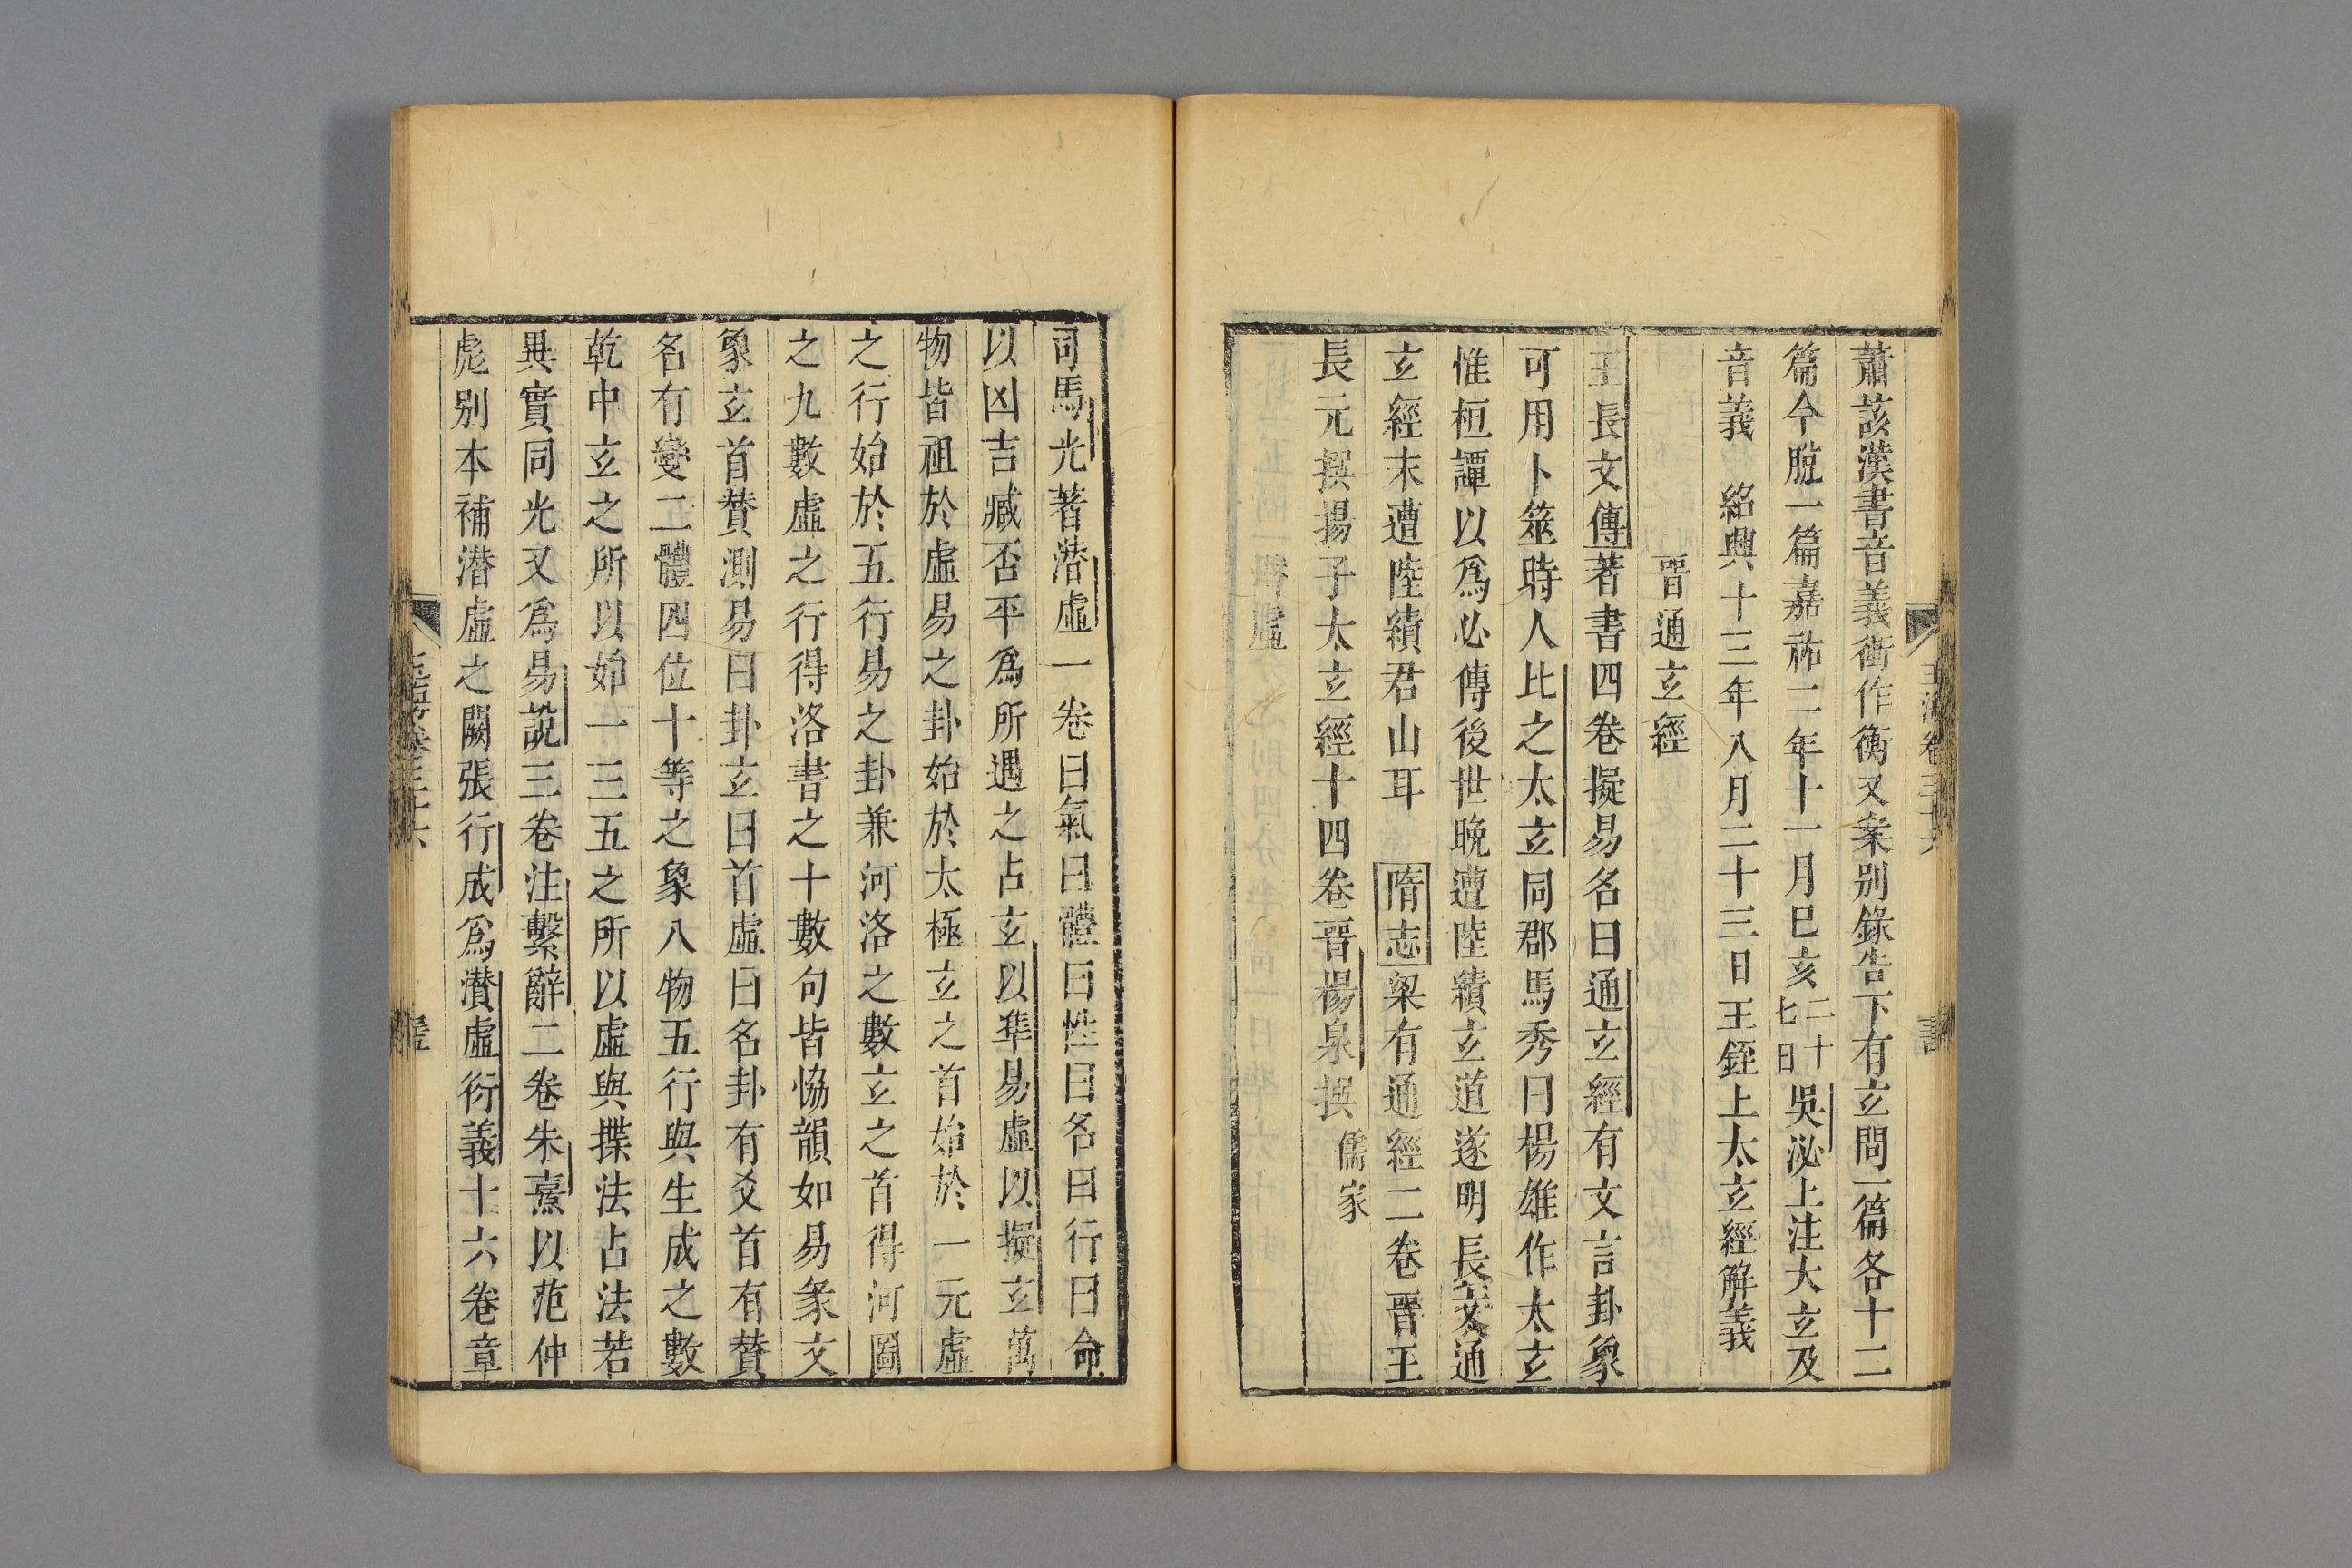 蕭該漢書音義衝作衡又案别錄告下有玄問一篇各十二
篇今脫一篇嘉祐二年十一月巳亥二十七日吳泌上注大玄及
音義　紹興十三年八月二十三日王銍上太玄經解義
晋通玄經
王長文傳著書四卷擬易名曰通玄經有文言卦象
可用卜筮時人比之太玄同郡馬秀曰楊雄作太玄
惟桓譚以爲必傳後世晩遭陸績玄道遂明長文通
玄經末遭陸績君山耳　隋志梁有通經二卷晋王
長元撰揚子太玄經十四卷晋楊泉撰　儒家
潜虛
司馬光著潜虛一卷曰氣曰體曰性曰名曰行曰命
以凶吉臧否平爲所遇之占玄以準易虛以擬玄萬
物皆祖於虛易之卦始於太極玄之首始於一元虛
之行始於五行易之卦兼河洛之數玄之首得河圖
之九數虛之行得洛書之十數句皆恊韻如易彖文
象玄首賛測易曰卦玄曰首虛曰名卦有爻首有賛
名有變二體四位十等之象八物五行與生成之數
乾中玄之所以始一三五之所以虛與揲法占法若
異實同光又爲易說三卷注繫辭二卷朱熹以范仲
彪别本補潜虛之闕張行成爲潜虛衍義十六卷章